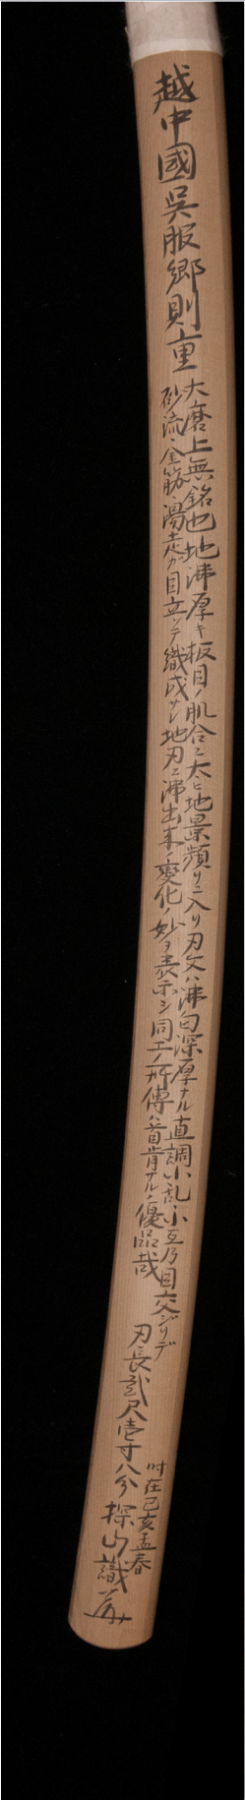 越中國呉服郷則重
大磨上無銘也地沸厚キ板目ノ肌合ニ太ヒ地景頻リニ入リ刃文ハ沸匂深厚ナル直調小乱小互乃目交ジリデ
砂流シ金筋湯走ガ目立ッテ織成サレ地刃ニ沸出来ノ変化ノ妙ヲ表示シ同工ノ所傳ハ首肯ナル優品哉
刃長弐尺壱寸八分
時在己亥孟春
探山識